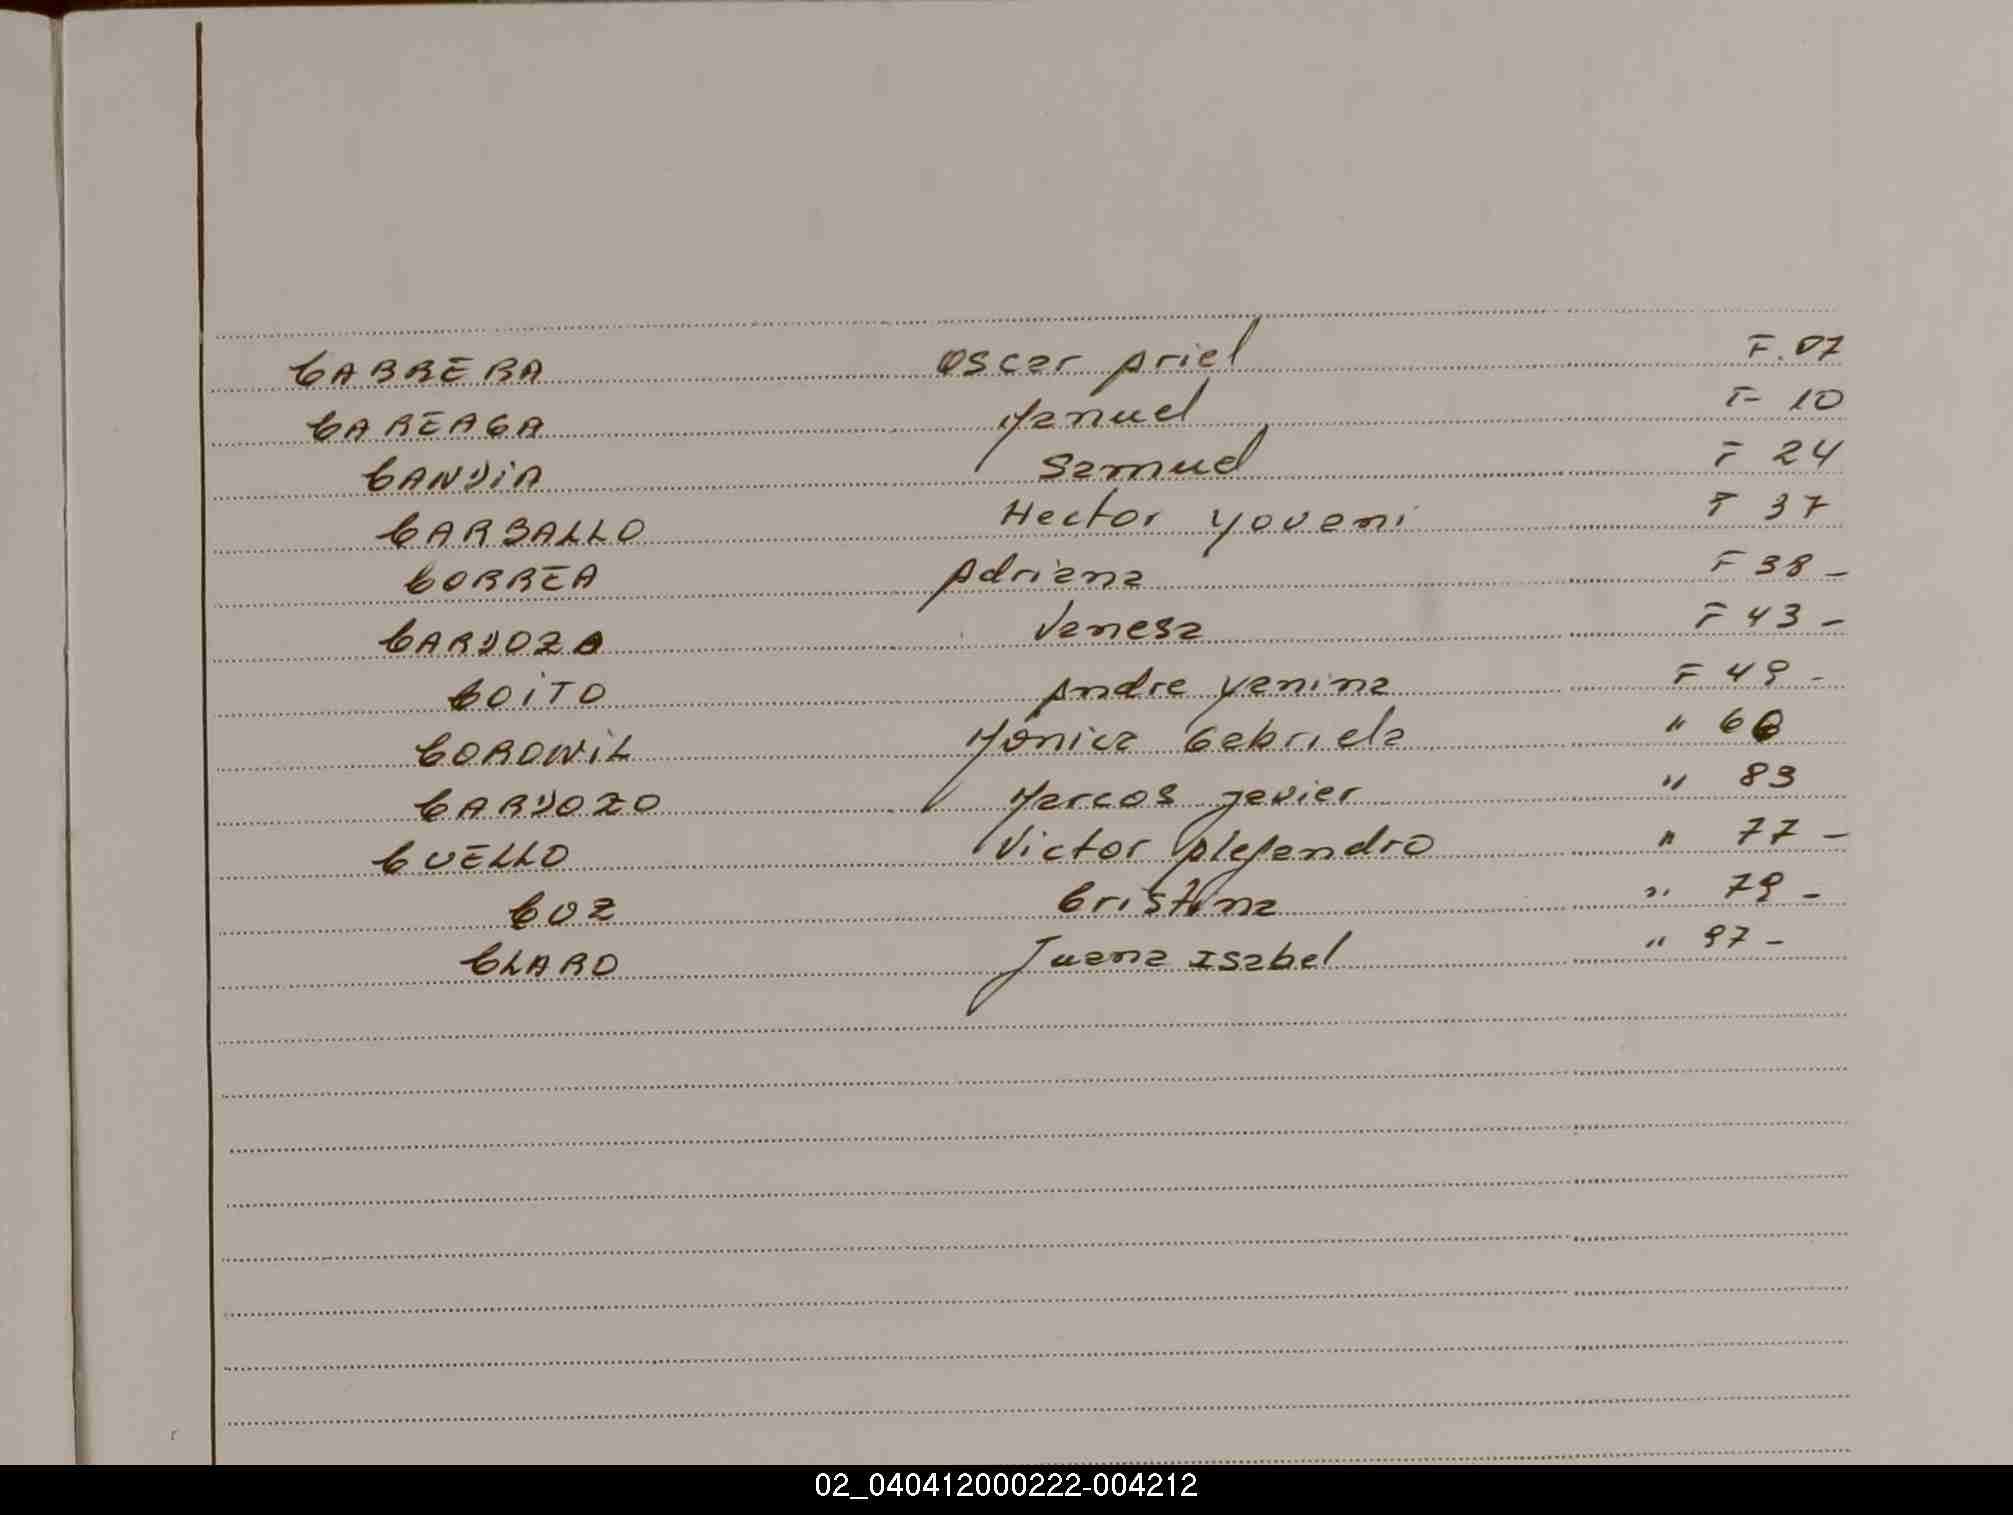 CABRERA Oscar Ariel F. 07
CAREAGA Manuel F 10
CANDIA Samuel F 24
CARBALLO Hector Yovani F 37
CORREA Adriana F 38 -
CARDOZO Vanesa F 43 -
COITO Andre Yanina F 49 -
CORONIL Mónica Gabriela " 60
CARDOZO Marcos Javier " 83
CUELLO Victor Alejandro " 77 -
COZ Cristina " 79 -
CLARO Juana Isabel " 97 -
02_040412000222-004212